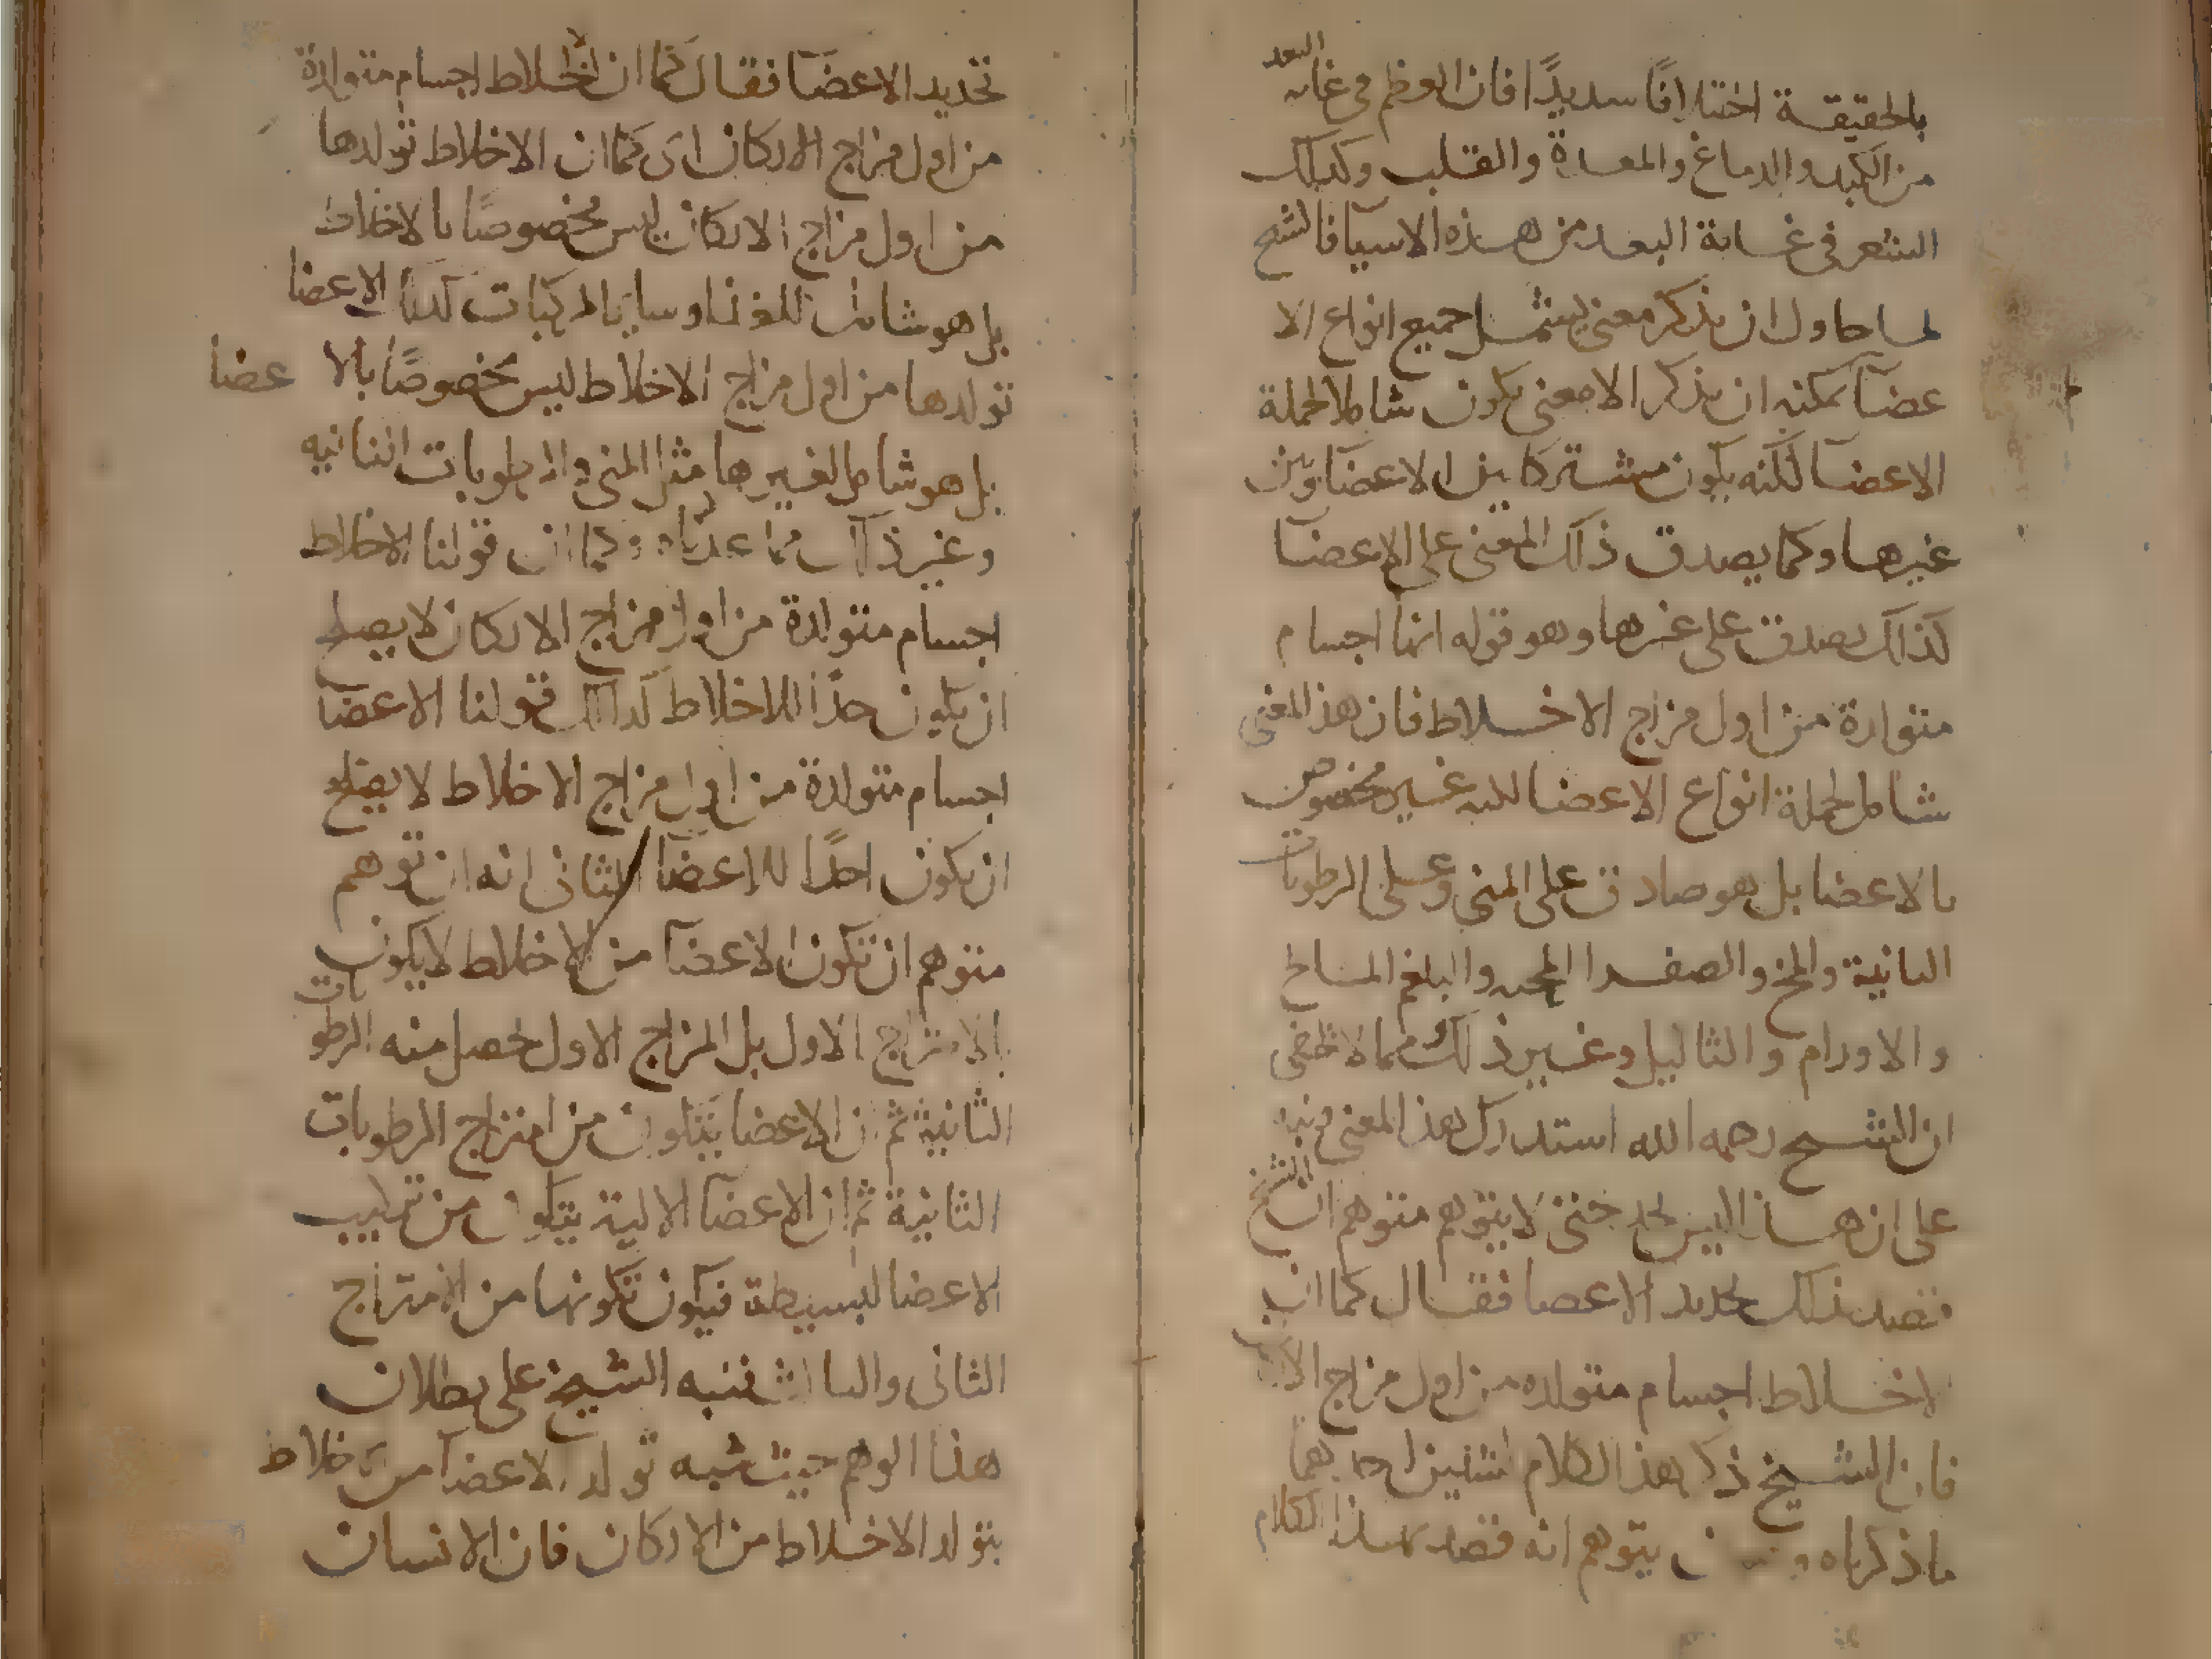 بالحقيقة اختلافًا سديدًا فان العظم فى غاية البعد
من الكبد والدماغ والمعدة والقلب وكذلك
الشعر فى غاية البعد من هذه الاسيآ فالشيخ
لما حاول ان يذكر معنى يشمل جميع انواع الا
عضآ يمكنه ان يذكر الا معنى يكون شاملا لجملة
الاعضآ لكنه يكون مشتركا بين الاعضآ وبين
غيرها وكما يصدق ذلك المعنى على الاعضآ
كذلك يصدق على غيرها وهو قوله انها اجسام
متولدة من اول مزاج الاخلاط فان هذا المعنى
شامل لجملة انواع الاعضا لكنه غير مخصوص
بالاعضا بل هو صادق على المنى وعلى الرطوبات
الثانية والمخ والصفرا المحية والبلغم المالح
والاورام والثاليل وغير ذلك مما لا يخفى
ان الشيخ رحمه الله استدرك هذا المعنى ونبه
على ان هذا ليس بحد حتى لا يتوهم متوهم ان الشيخ
قصد بذلك تحديد الاعضا فقال كما ان
الاخلاط اجسام متولده من اول مزاج الار
فان الشيخ ذكر هذا الكلام اثنين احدهما
ما ذكرناه يتوهم انه قصد بهذا الكلام
تحديد الاعضآ فقال كما ان الاخلاط اجسام متولدة
من اول مزاج الاركان اى كما ان الاخلاط تولدها
من اول مزاج الاركان ليس مخصوصًا بالاخلاط
بل هو شامل للغذا وساير المركبات كذلك الاعضا
تولدها من اول مزاج الاخلاط ليس مخصوصًا بالا عضا
بل هو شامل لغيرها مثل المنى والرطوبات الثانيه
وغير ذلك مما عددناه وكما ان قولنا الاخلاط
اجسام متولدة من اول مزاج الاركان لا يصلح
ان يكون حدًا للاخلاط كذلك قولنا الاعضآ
اجسام متولدة من اول مزاج الاخلاط لا يصلح
ان يكون حدًا للاعضآ الثانى انه ان توهم
متوهم ان تكون الاعضآ من الاخلاط لا يكون
بالامتزاج الاول بل المزاج الاول يحصل منه الرطوبات
الثانية ثم ان الاعضا يتكون من امتزاج الرطوبات
الثانية ثم ان الاعضآ الالية يتكون من تركيب
الاعضا البسيطة فيكون تكونها من الامتزاج
الثانى والثالث فنبه الشيخ على بطلان
هذا الوهم حيث شبه تولد الاعضآ من الاخلاط
بتولد الاخلاط من الاركان فان الانسان